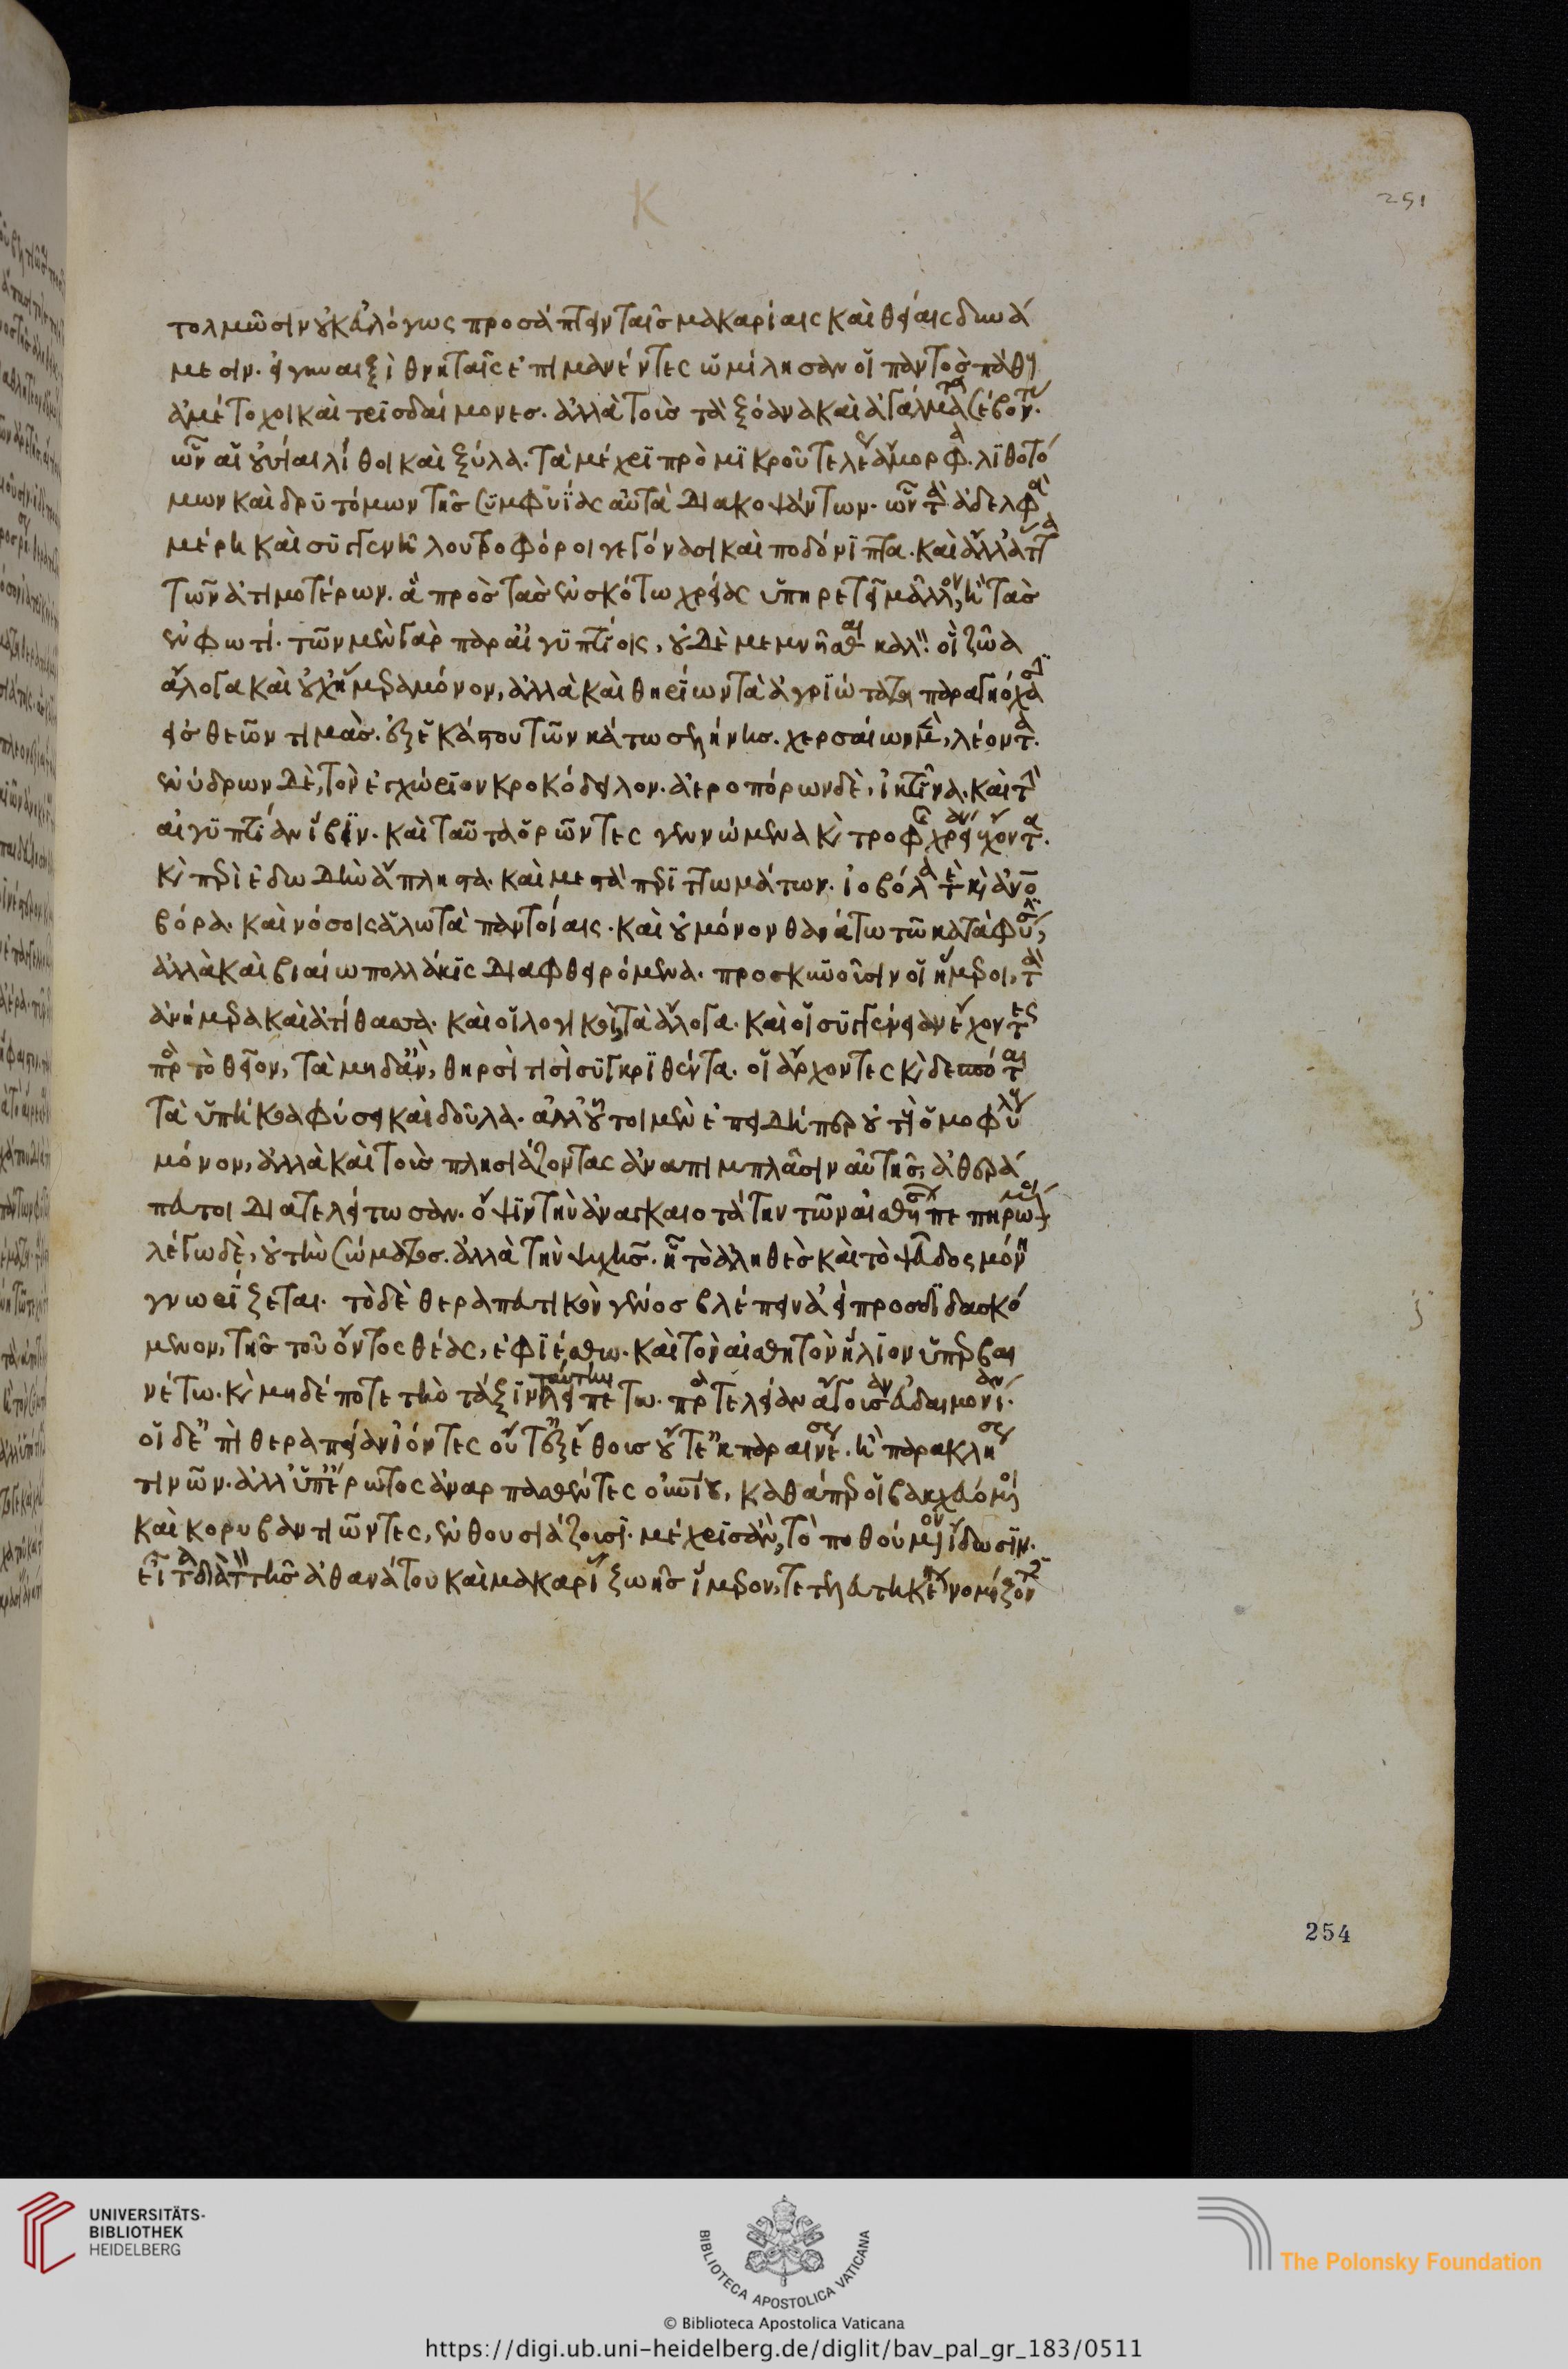 τολμῶσιν οὐκ εὐλόγως προσάπτειν ταῖς μακαρίαις καὶ θείαις δυνά
μεσιν. εἰ γυναιξὶ θνηταῖς ἐπιμανέντες ὡμίλησαν οἱ παντὸς πάθει
ἀμέτοχοι καὶ τρισδαίμονες. ἀλλὰ τοῖς τὰ ξόανα καὶ ἀγάλματα σέβοντ.
ὧν αἱ οὐσίαι λίθοι καὶ ξύλα. τὰ μέχρι πρὸ μικροῦ τελέως ἄμορφα. λιθοτό
μων καὶ δρυτόμων τῆς συμφυΐας αὐτὰ διακοψάντων. ὧν τὰ ἀδελφὰ
μέρη καὶ συγγενῆ λουτροφόροι γεγόνασι καὶ ποδόνιπτρα. καὶ ἄλλ' ἄττα
τῶν ἀτιμοτέρων. ἃ πρὸς τὰς ἐν σκότω χρείας ὑπηρετεῖ μᾶλλον, ἢ τὰς
ἐν φωτί. τῶν μὲν γὰρ παρ' αἰγυπτίοις, οὐδὲ μεμνῆσθαι καλόν. οἳ ζῶα
ἄλογα καὶ οὐχ ἥμερα μόνον, ἀλλὰ καὶ θηρίων τὰ ἀγριώτατα παραγηόχασιν
εἰς θεῶν τιμάς. ἐξ ἑκάστου τῶν κάτω σελήνης. χερσαίων μὲν, λέοντα.
ἐνύδρων δὲ, τὸν ἐγχώριον κροκόδειλον. ἀεροπόρων δὲ, ἰκτῖνα. καὶ τὴν
αἰγυπτίαν ἶβιν. καὶ ταῦτα ὁρῶντες γεννώμενα καὶ τροφῆς χρείαν ἔχοντα.
καὶ περὶ ἐδωδὴν ἄπληστα. καὶ μεστὰ περιττωμάτων. ἰοβόλα τε καὶ ἀνο
βόρα. καὶ νόσοις ἁλωτὰ παντοίαις. καὶ οὐ μόνον θανάτω τῶ κατὰ φύσιν,
ἀλλὰ καὶ βιαίω πολλάκις διαφθειρόμενα. προσκυνοῦσιν οἱ ἥμεροι, τὰ
ἀνήμερα καὶ ἀτίθασα. καὶ οἱ λογικοὶ, τὰ ἄλογα. καὶ οἱ συγγένειαν ἔχοντες
πρὸς τὸ θεῖον, τὰ μηδ' ἂν, θηρσί τισι συγκριθέντα. οἱ ἄρχοντες καὶ δεσπόται
τὰ ὑπήκοα φύσει καὶ δοῦλα. ἀλλ' οὗτοι μὲν ἐπειδήπερ οὐ τοὺς ὁμοφύλους
μόνον, ἀλλὰ καὶ τοὺς πλησιάζοντας ἀναπιμπλᾶσιν αὐτῆς, ἀθερά
πευτοι διατελείτωσαν. ὄψιν τὴν ἀναγκαιοτάτην τῶν αἰσθήσεων πεπηρωμένοι.
λέγω δὲ, οὐ τὴν σώματος. ἀλλὰ τὴν ψυχῆς. ἧ τὸ ἀληθὲς καὶ τὸ ψεῦδος μόνη
γνωρίζεται. τὸ δὲ θεραπευτικὸν γένος βλέπειν ἀεὶ προσδιδασκό
μενον, τῆς τοῦ ὄντος θέας, ἐφιέσθω. καὶ τὸν αἰσθητὸν ἥλιον ὑπερβαι
νέτω. καὶ μηδέποτε τὴν τάξιν ταύτην λειπέτω. πρὸς τελείαν ἄγουσαν εὐδαιμονίαν.
οἱ δ' ἐπὶ θεραπείαν ἰόντες οὔτ' ἐξ ἔθους οὔτ' ἐκ παραινέσεως. ἢ παρακλήσεως
τινῶν. ἀλλ' ὑπ' ἔρωτος ἁναρπασθέντες οὐρανίου, καθάπερ οἱ βακχευόμενοι
καὶ κορυβαντιῶντες, ἐνθουσιάζουσι. μέχρις ἂν, τὸ ποθούμενον ἴδωσιν.
εἶτα διὰ τὸν τῆς ἀθανάτου καὶ μακαρίας ζωῆς ἵμερον, τετελευτηκέναι νομίζοντες
K
251
254
UNIVERSITÄTS-
BIBLIOTHEK
HEIDELBERG
BIBLIOTECA APOSTOLICA VATICANA
The Polonsky Foundation
© Biblioteca Apostolica Vaticana
https://digi.ub.uni-heidelberg.de/diglit/bav_pal_gr_183/0511